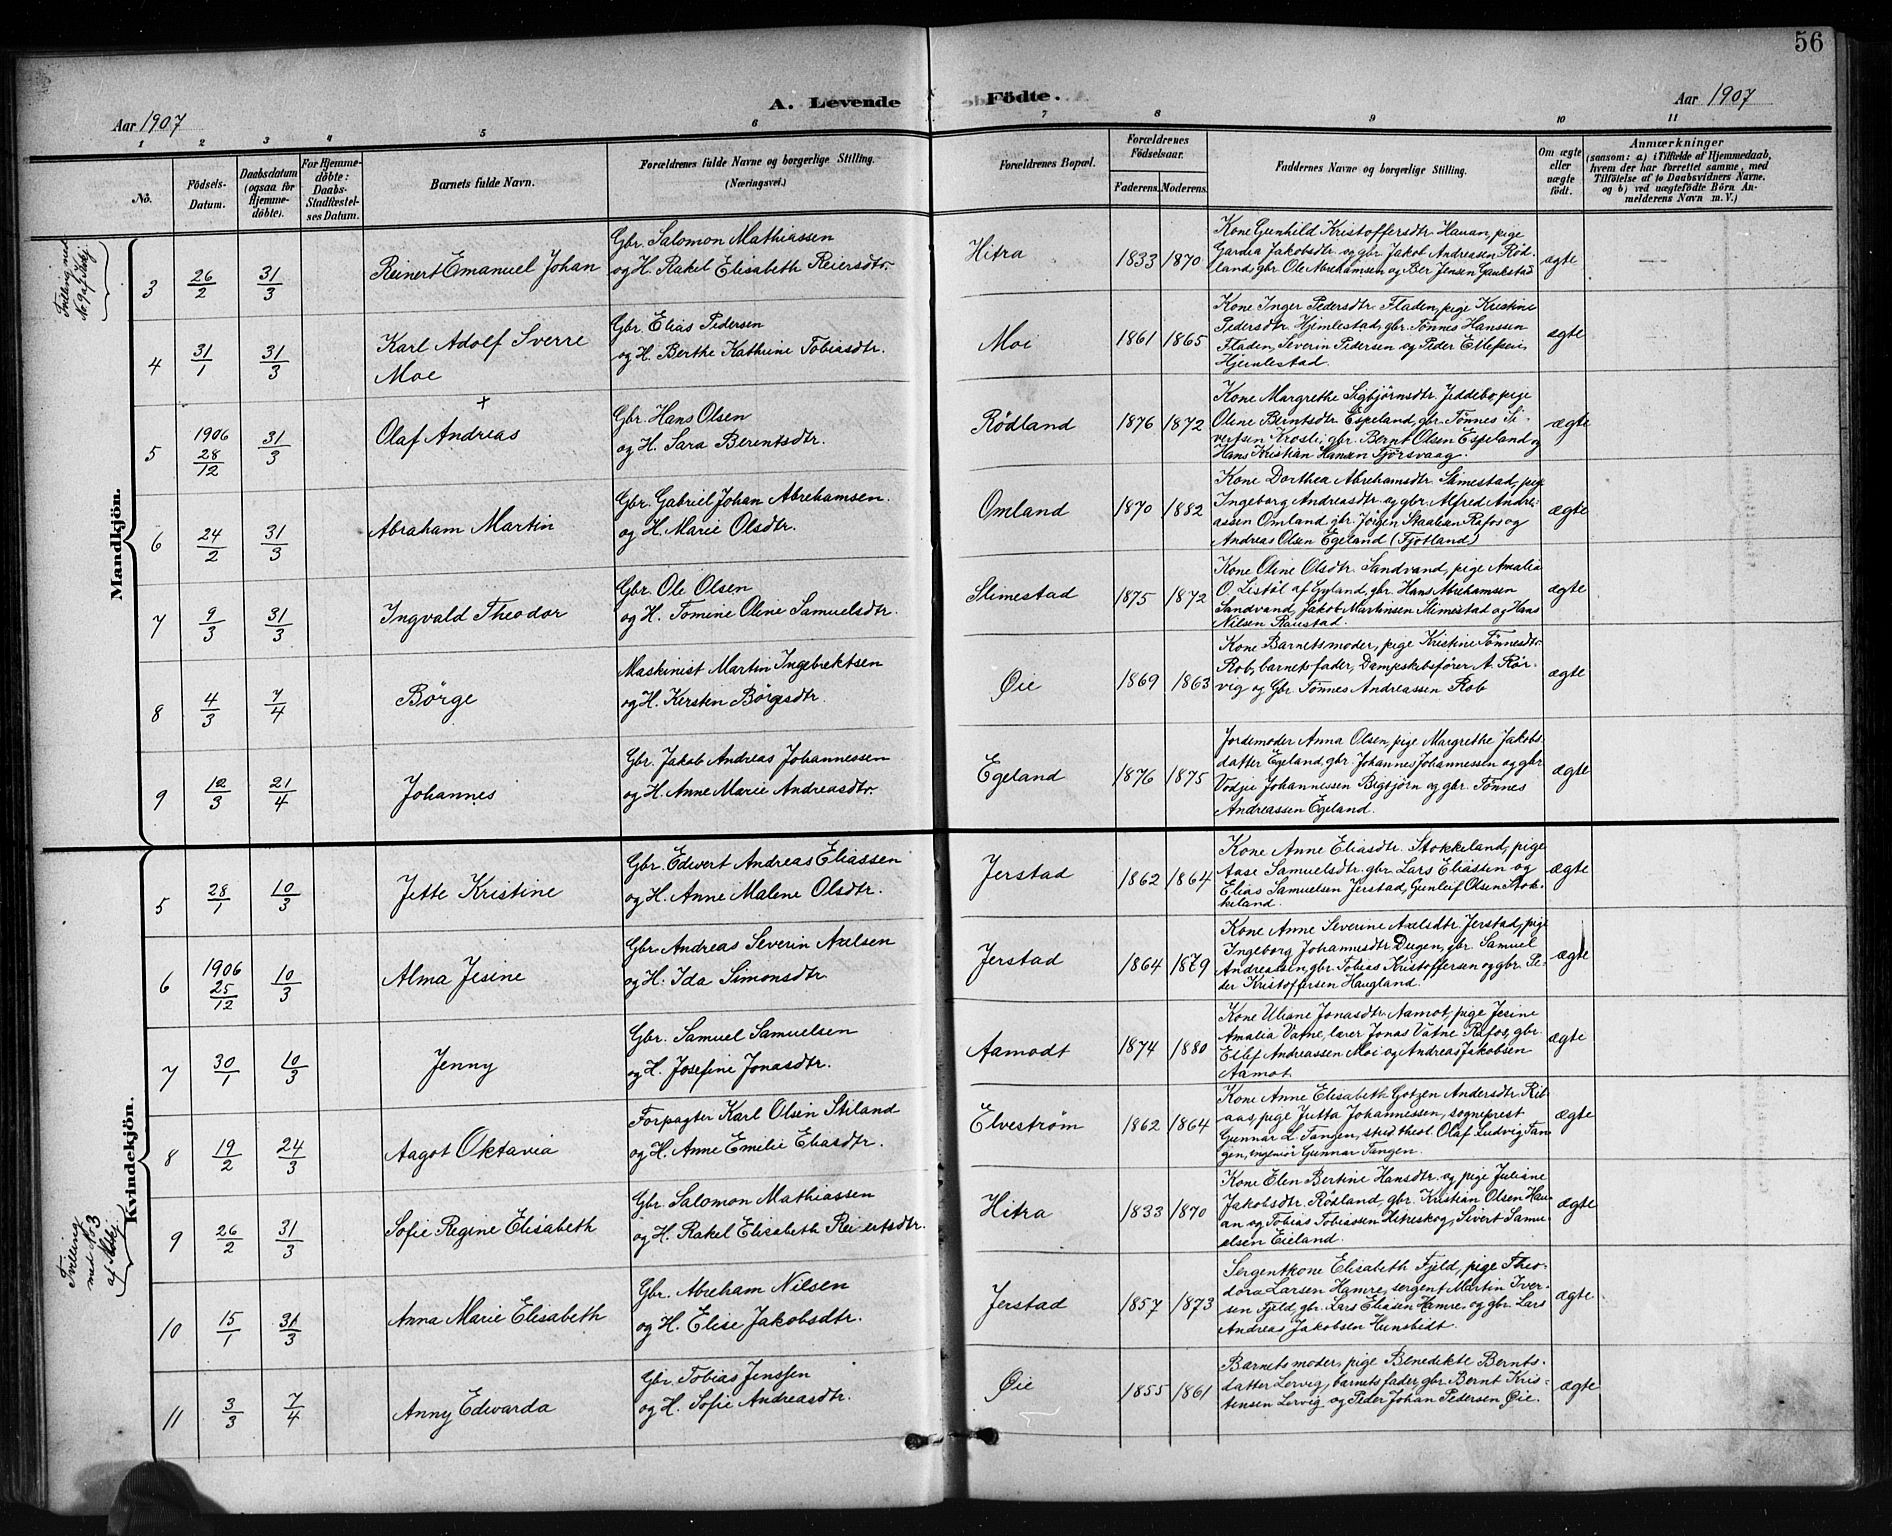 56
A. Levende Födte.
Aar 1907
Aar 1907
1 2 3 4 5 6 7 8 9 10 11
No.
Födsels-Datum.
Daabsdatum (ogsaa for Hjemmedöbte).
For Hjemmedöbte: Daabs-Stadfæstelses Datum.
Barnets fulde Navn.
Forældrenes fulde Navne og borgerlige Stilling. (Næringsvei.)
Forældrenes Bopæl.
Forældrenes Födselsaar.
Faderens. Moderens.
Faddernes Navne og borgerlige Stilling.
Om ægte eller uægte födt.
Anmærkninger
(saasom: a) i Tilfælde af Hjemmedaab, hvem der har forrettet samme, med Tilföielse af to Daabsvidners Navne, og b) ved uægtefödte Börn Anmelderens Navn m. V.)
Mandkjön.
Tvilling med No 9 af Kvkj
3 26/2 31/3 Reinert Emanuel Johan
Gbr. Salomon Mathiassen
og H. Rakel Elisabeth Reiersdtr.
Hitra 1833 1870
Kone Gunhild Kristoffersdtr. Hauan, pige
Gardia Jakobsdtr. og gbr. Jakob Andreassen Rød-
land, gbr. Ole Abrahamsen og Ber Jensen Gaukestad
ægte
4 31/1 31/3 Karl Adolf Sverre
Moe
Gbr. Elias Pedersen
og H. Berthe Kathrine Tobiasdtr.
Moi 1861 1865
Kone Inger Pedersdtr. Fladen, pige Kristine
Pedersdtr. Hjemlestad, gbr. Tönnes Hanssen
Fladen, Severin Pedersen og Peder
Hjemlestad.
ægte
5 1906 28/12 31/3 Olaf Andreas
Gbr. Hans Olsen
og H. Sara Berentsdtr.
Rødland 1876 1872
Kone Margrethe Sigbjørnsdtr. Jeddebo, pige
Oline Berntsdtr. Espeland, gbr. Tønnes Si-
vertsen Frosli, gbr. Bernt Olsen Espeland og
Hans Kristian Hansen Fjørsvaag.
ægte
6 24/2 31/3 Abraham Martin
Gbr. Gabriel Johan Abrehamsen.
og H. Marie Olsdtr.
Omland 1870 1882
Kone Dorthea Abrehamsdtr. Slimestad, pige
Ingeborg Andreasdtr. og gbr. Alfred Andre-
assen Omland, gbr. Jørgen Staalisen Rafos og
Andreas Olsen Egeland (Fjotland)
ægte
7 9/3 31/3 Ingvald Theodor
Gbr. Ole Olsen
og H. Tomine Oline Samuelsdtr.
Slimestad 1875 1872
Kone Oline Olsdtr. Sandvand, pige Amalia
O. Listøl af Gyland, gbr. Hans Abrehamsen
Sandvand, Jakob Martinsen Slimestad og Hans
Nilsen Raustad.
ægte
8 4/3 7/4 Börge
Maskinist Martin Ingebrektsen
og H. Kersten Børgesdtr.
Øie 1869 1863
Kone Barnetsmoder, pige Kristine Tønnesdtr.
Rob, barnets fader, Dampskibsfører A. Rør-
vig og Gbr. Tønnes Andreassen Rob
ægte
9 12/3 21/4 Johannes
Gbr. Jakob Andreas Johannessen
og H. Anne Marie Andreasdtr.
Egeland 1876 1875
Jordemoder Anna Olsen, pige Margrethe Jakobs-
datter Egeland, gbr. Johannes Johannessen og gbr
Vodjei Johannessen Bigbjørn og gbr. Tønnes
Andreassen Egeland.
ægte
Kvindekjön.
5 28/1 10/3 Jette Kristine
Gbr. Edvert Andreas Eliassen
og H. Anne Malene Olsdtr.
Jerstad 1862 1864
Kone Anne Eliasdtr. Stokkeland, pige
Aase Samuelsdtr. gbr. Lars Eliassen og
Elias Samuelsen Jerstad, Gunleif Olsen Stok-
keland.
ægte
6 1906 25/12 10/3 Alma Jesine
Gbr. Andreas Severin Axelsen
og H. Ida Simonsdtr.
Jerstad 1864 1879
Kone Anne Severine Axelsdtr. Jerstad, pige
Ingeborg Johannesdtr. Dugen, gbr. Samuel
Andreassen, gbr. Tobias Kristoffersen og gbr. Pe-
der Kristoffersen Haugland.
ægte
7 30/1 10/3 Jenny
Gbr. Samuel Samuelsen
og H. Josefine Jonasdtr.
Aamodt 1874 1880
Kone Uliane Jonasdtr. Aamot, pige Jesine
Amalia Vatne, lærer Jonas Vatne Rafos, gbr.
Eilef Andreassen Moi og Andreas Jakobsen
Aamot.
ægte
8 19/2 24/3 Aagot Oktavia
Forpagter Karl Olsen Stiland
og H. Anne Emilie Eliasdtr.
Elveström 1862 1864
Kone Anne Elisabeth Gotzen Andersdtr. Rib-
aas, pige Jutta Johannessen, sogneprest
Gunnar L. Tangen, stud theol. Olaf Ludvig Tan-
gen, ingeniør Gunnar Tangen.
ægte
Tvilling med No 3 af Mkj
9 26/2 31/3 Sofie Regine Elisabeth
Gbr. Salomon Mathiassen
og H. Rakel Elisabeth Reiertsdtr.
Hitra 1833 1870
Kone Elen Bertine Hansdtr. og pige Juliane
Jakobsdtr. Rødland, gbr. Kristian Olsen Hau-
an og Tobias Tobiassen Hitreskog, Sivert Samu-
elsen Eieland.
ægte
10 15/1 31/3 Anna Marie Elisabeth
Gbr. Abreham Nilsen
og H. Elise Jakobsdtr.
Jerstad 1857 1873
Sergentkone Elisabeth Fjeld, pige Theo-
dora Larsen Hamre, sergent Martin Iver-
sen Fjeld, gbr. Lars Eliasen Hamre, og gbr. Lars
Andreas Jakobsen Hunsbedt.
ægte
11 3/3 7/4 Anny Edvarda
Gbr. Tobias Jenssen
og H. Sofie Andreasdtr.
Øie 1855 1861
Barnets moder, pige Benedikte Bernts-
datter Lervig, barnets fader, gbr. Bernt Kris-
tensen Lervig og Peder Johan Pedersen Øie.
ægte